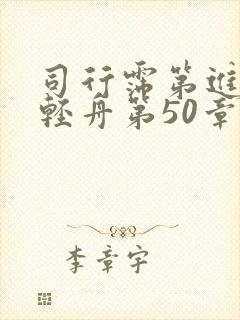 司行霈第進
輕舟第50章
李章宇